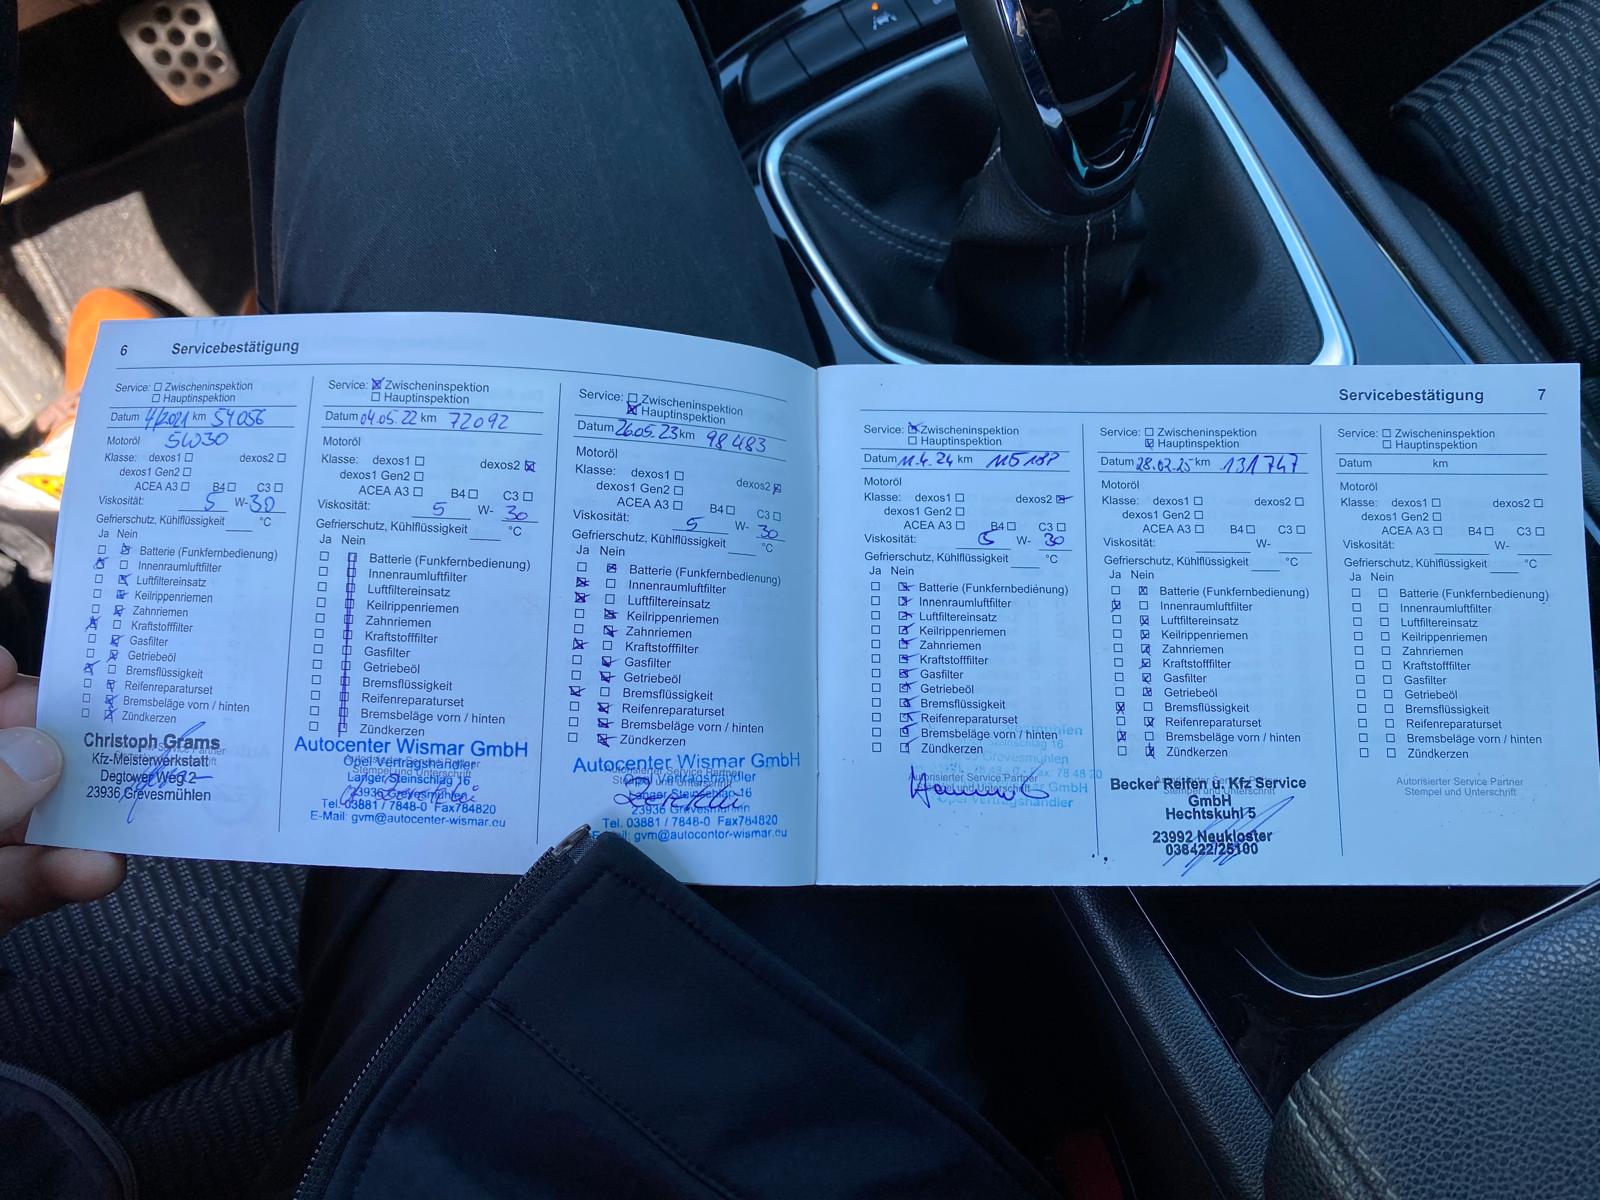 6 Servicebestätigung
Service: ☐ Zwischeninspektion
☐ Hauptinspektion
Datum 4/2021 km 54056
Motoröl 5W30
Klasse: dexos1 ☐ dexos2 ☐
dexos1 Gen2 ☐
ACEA A3 ☐ B4 ☐ C3 ☐
Viskosität: 5 W-30
Gefrierschutz, Kühlflüssigkeit ____ °C
Ja Nein
☐ ☒ Batterie (Funkfernbedienung)
☒ ☐ Innenraumfilter
☐ ☒ Luftfiltereinsatz
☐ ☒ Keilrippenriemen
☐ ☒ Zahnriemen
☒ ☐ Kraftstofffilter
☐ ☒ Gasfilter
☐ ☒ Getriebeöl
☒ ☐ Bremsflüssigkeit
☐ ☒ Reifenreparaturset
☐ ☒ Bremsbeläge vorn / hinten
☐ ☒ Zündkerzen
Christoph Grams
Kfz-Meisterwerkstatt
Degtower Weg 2
23936 Grevesmühlen
Service: ☒ Zwischeninspektion
☐ Hauptinspektion
Datum 04.05.22 km 72092
Motoröl
Klasse: dexos1 ☐ dexos2 ☒
dexos1 Gen2 ☐
ACEA A3 ☐ B4 ☐ C3 ☐
Viskosität: 5 W- 30
Gefrierschutz, Kühlflüssigkeit ____ °C
Ja Nein
☐ ☐ Batterie (Funkfernbedienung)
☐ ☐ Innenraumfilter
☐ ☐ Luftfiltereinsatz
☐ ☐ Keilrippenriemen
☐ ☐ Zahnriemen
☐ ☐ Kraftstofffilter
☐ ☐ Gasfilter
☐ ☐ Getriebeöl
☐ ☐ Bremsflüssigkeit
☐ ☐ Reifenreparaturset
☐ ☐ Bremsbeläge vorn / hinten
☐ ☐ Zündkerzen
Autocenter Wismar GmbH
Opel Vertragshändler
Langer Steinschlag 16
23936 Grevesmühlen
Tel. 03881 / 7848-0 Fax 784820
E-Mail: gvm@autocenter-wismar.eu
Service: ☐ Zwischeninspektion
☒ Hauptinspektion
Datum 26.05.23 km 98483
Motoröl
Klasse: dexos1 ☐ dexos2 ☒
dexos1 Gen2 ☐
ACEA A3 ☐ B4 ☐ C3 ☐
Viskosität: 5 W- 30
Gefrierschutz, Kühlflüssigkeit ____ °C
Ja Nein
☐ ☒ Batterie (Funkfernbedienung)
☒ ☐ Innenraumfilter
☒ ☐ Luftfiltereinsatz
☐ ☒ Keilrippenriemen
☐ ☒ Zahnriemen
☒ ☐ Kraftstofffilter
☐ ☒ Gasfilter
☐ ☒ Getriebeöl
☒ ☐ Bremsflüssigkeit
☐ ☒ Reifenreparaturset
☐ ☒ Bremsbeläge vorn / hinten
☐ ☒ Zündkerzen
Autocenter Wismar GmbH
Opel Vertragshändler
Langer Steinschlag 16
23936 Grevesmühlen
Tel. 03881 / 7848-0 Fax 784820
E-Mail: gvm@autocenter-wismar.eu
Servicebestätigung 7
Service: ☒ Zwischeninspektion
☐ Hauptinspektion
Datum 11.4.24 km
Motoröl
Klasse: dexos1 ☐ dexos2 ☒
dexos1 Gen2 ☐
ACEA A3 ☐ B4 ☐ C3 ☐
Viskosität: 5 W- 30
Gefrierschutz, Kühlflüssigkeit ____ °C
Ja Nein
☐ ☒ Batterie (Funkfernbedienung)
☐ ☒ Innenraumluftfilter
☐ ☒ Luftfiltereinsatz
☐ ☒ Keilrippenriemen
☐ ☒ Zahnriemen
☐ ☒ Kraftstofffilter
☐ ☒ Gasfilter
☐ ☒ Getriebeöl
☐ ☒ Bremsflüssigkeit
☐ ☒ Reifenreparaturset
☐ ☒ Bremsbeläge vorn / hinten
☐ ☒ Zündkerzen
Autorisierter Service Partner
Stempel und Unterschrift
Opel Vertragshändler
Service: ☐ Zwischeninspektion
☒ Hauptinspektion
Datum 28.02.25 km 131747
Motoröl
Klasse: dexos1 ☐ dexos2 ☐
dexos1 Gen2 ☐
ACEA A3 ☐ B4 ☐ C3 ☐
Viskosität: ____ W- ____
Gefrierschutz, Kühlflüssigkeit ____ °C
Ja Nein
☐ ☒ Batterie (Funkfernbedienung)
☒ ☐ Innenraumluftfilter
☐ ☒ Luftfiltereinsatz
☐ ☒ Keilrippenriemen
☐ ☒ Zahnriemen
☐ ☒ Kraftstofffilter
☐ ☒ Gasfilter
☐ ☒ Getriebeöl
☒ ☐ Bremsflüssigkeit
☐ ☒ Reifenreparaturset
☒ ☐ Bremsbeläge vorn / hinten
☐ ☒ Zündkerzen
Becker Reifen u. Kfz Service
GmbH
Hechtskuhl 5
23992 Neukloster
038422/25100
Service: ☐ Zwischeninspektion
☐ Hauptinspektion
Datum km
Motoröl
Klasse: dexos1 ☐ dexos2 ☐
dexos1 Gen2 ☐
ACEA A3 ☐ B4 ☐ C3 ☐
Viskosität: ____ W- ____
Gefrierschutz, Kühlflüssigkeit ____ °C
Ja Nein
☐ ☐ Batterie (Funkfernbedienung)
☐ ☐ Innenraumluftfilter
☐ ☐ Luftfiltereinsatz
☐ ☐ Keilrippenriemen
☐ ☐ Zahnriemen
☐ ☐ Kraftstofffilter
☐ ☐ Gasfilter
☐ ☐ Getriebeöl
☐ ☐ Bremsflüssigkeit
☐ ☐ Reifenreparaturset
☐ ☐ Bremsbeläge vorn / hinten
☐ ☐ Zündkerzen
Autorisierter Service Partner
Stempel und Unterschrift